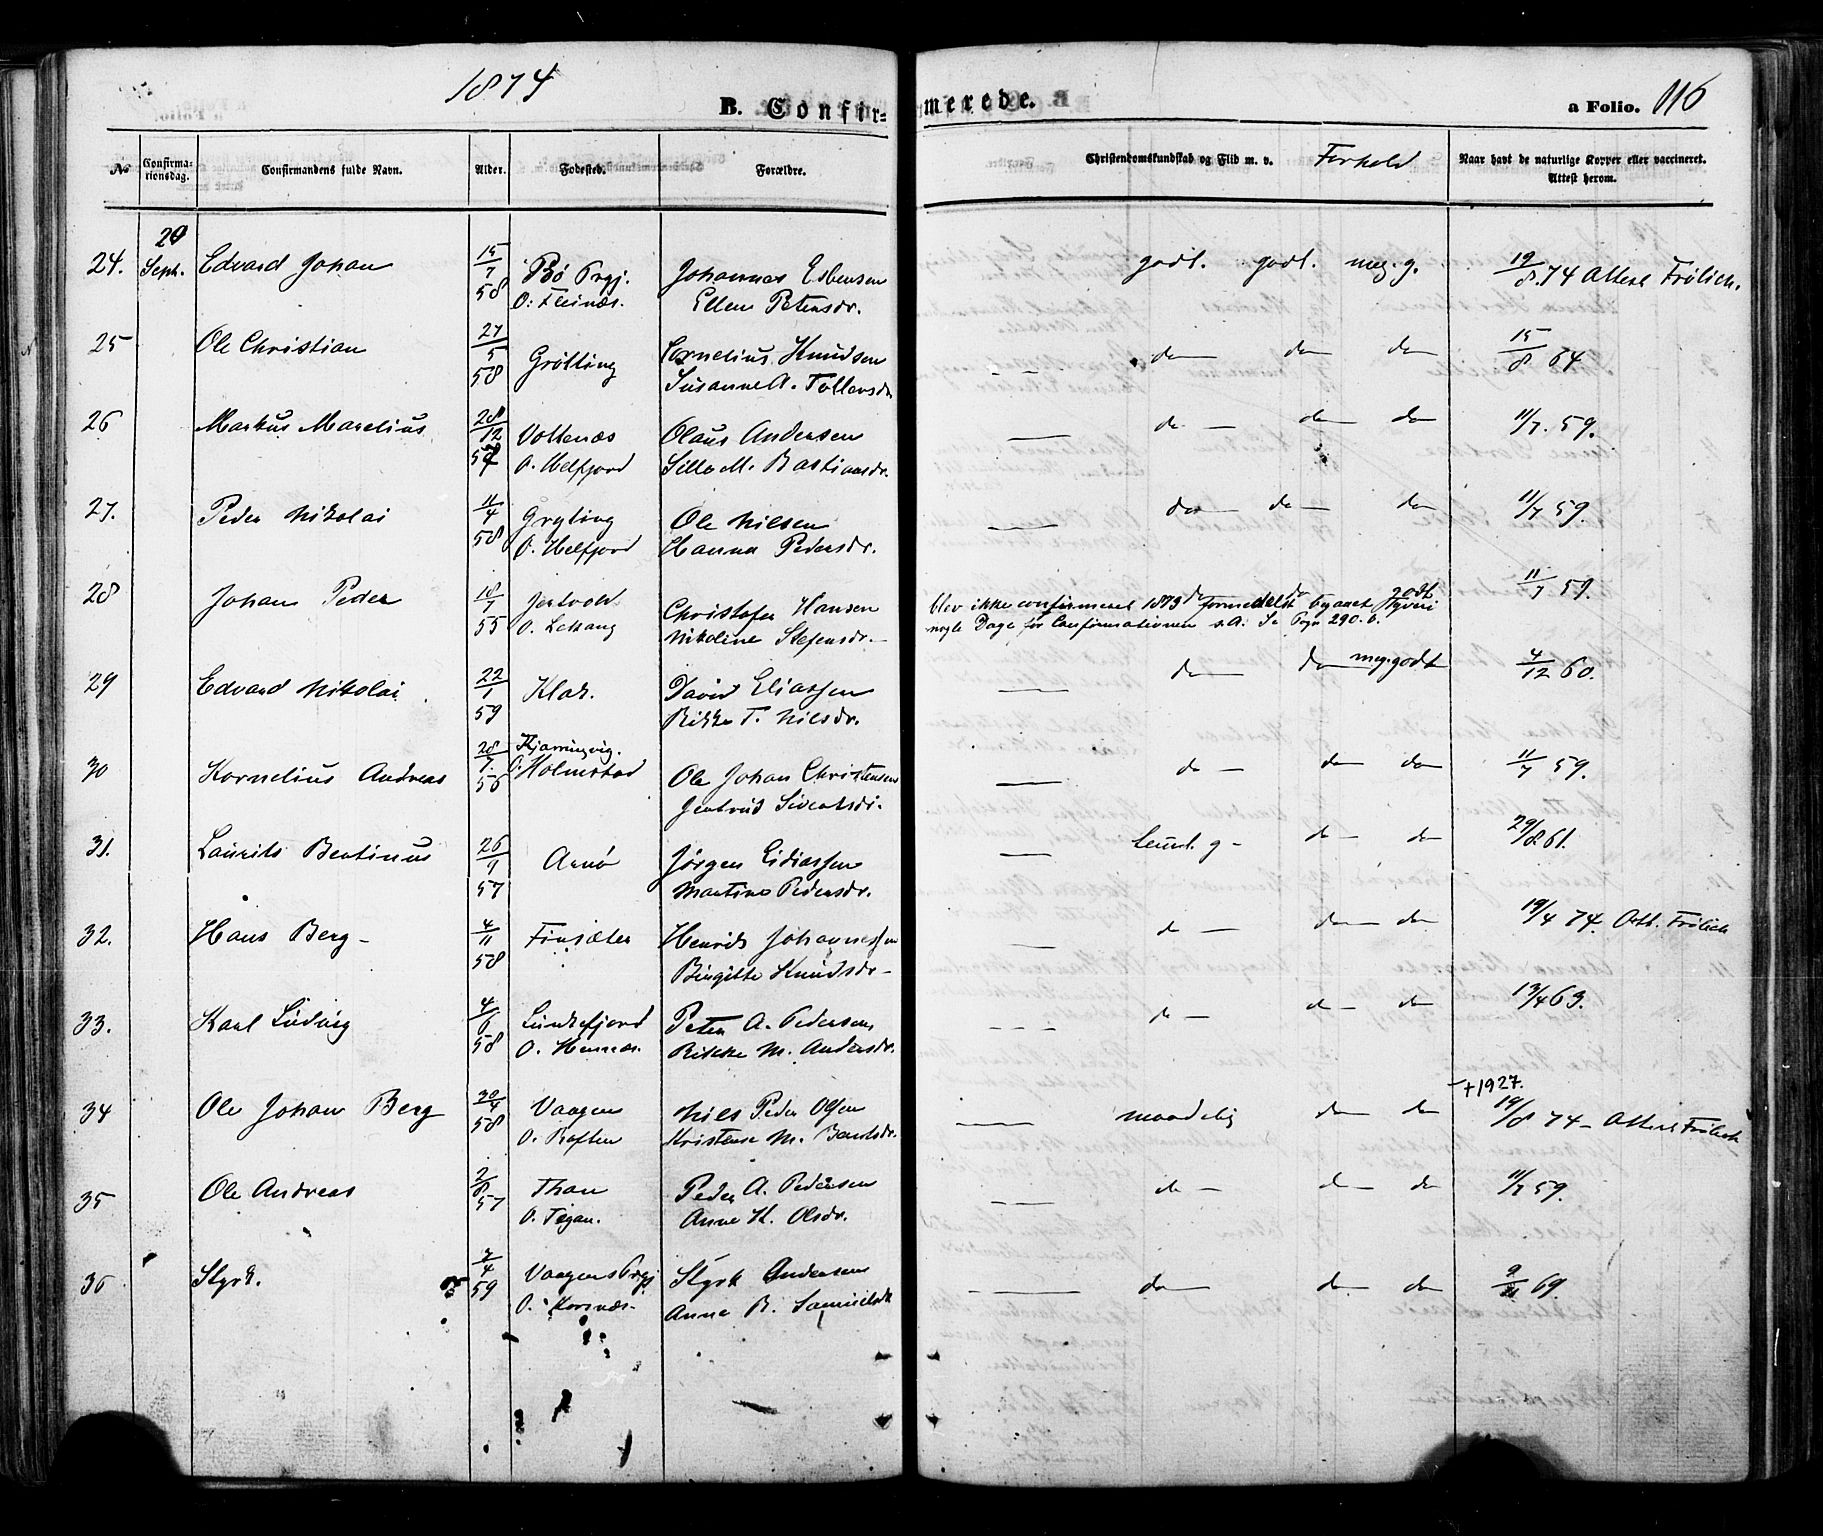 1874
B. Confirmerede.
a Folio. 116
No
Confirmationsdag.
Confirmandens fulde Navn.
Alder.
Fødested.
Forældre.
Christendomskundskab og Flid m. v.
Forhold
Naar havt de naturlige Kopper eller vaccineret. Attest herom.
24. 20 Sept. Edvard Johan 15/7 58 Bø Prgj. O. Fleinæs. Johannes Esbensen Ellen Petersdr. godt. godt. meg. g. 19/8. 74 Attest Frølich.
25 Ole Christian 27/5 58 Grøtting Cornelius Knudsen Susanne A. Tollevsdr do do do 15/8 64.
26 Markus Marelius 28/12 57 Voltenæs O. Melfjord Olaus Andersen Sille M. Bastiansdr. do do do 11/7. 59.
27. Peder Nikolai 11/4 58 Gryting O. Melfjord Ole Nilsen Hanna Pedersdr. do do do 11/7 59.
28 Johan Peder 18/7 55 O. Christofer Hansen Nikoline Stefensdr. godt 11/7 59.
blev ikke confirmeret 1873 formedelst begaaet Tyveri
nogle Dage før Confirmationen s.A. Se Pag 290. b.
29 Edvard Nikolai 22/1 59 Klak. David Eliassen Rikke T. Nilsdr. do do meg. godt 4/12 60.
30 Kornelius Andreas 28/7. Kjørringvig. O. Holmstad Ole Johan Christensen Jertrud Sivertsdr. do do do 11/7 59.
31. Laurits Bertinus 26/9 57 Arnø Jørgen Eidiassen Martine Pedersdr. temml. g do do 29/8. 61.
32. Hans Berg 4/11 58 Finsæter Henrik Johannessen Birgitte Knudsdr do do do 19/4 74. Att. Frølich
33. Karl Ludvig 4/6 58 Lunkefjord O. Hennes. Peter A. Pedersen Rikke M. Andersdr. do do do 13/4 63.
34 Ole Johan Berg 30/4 58 Vaagen O. Raften Nils Peder Olsen Kristense M. Bentsdr. maadelig do do +1927. 19/8 74 Attest Frølich
35 Ole Andreas 2/8 57 Than O. Tegan. Peder A. Pedersen Anne K. Olsdr. do do do 11/7 59.
36 Styrk. 7/4 59 Vaagens Prgj O. Korsnæs. Styrk Andersen Anne B. Samuelsdr do do do 9/11 69.